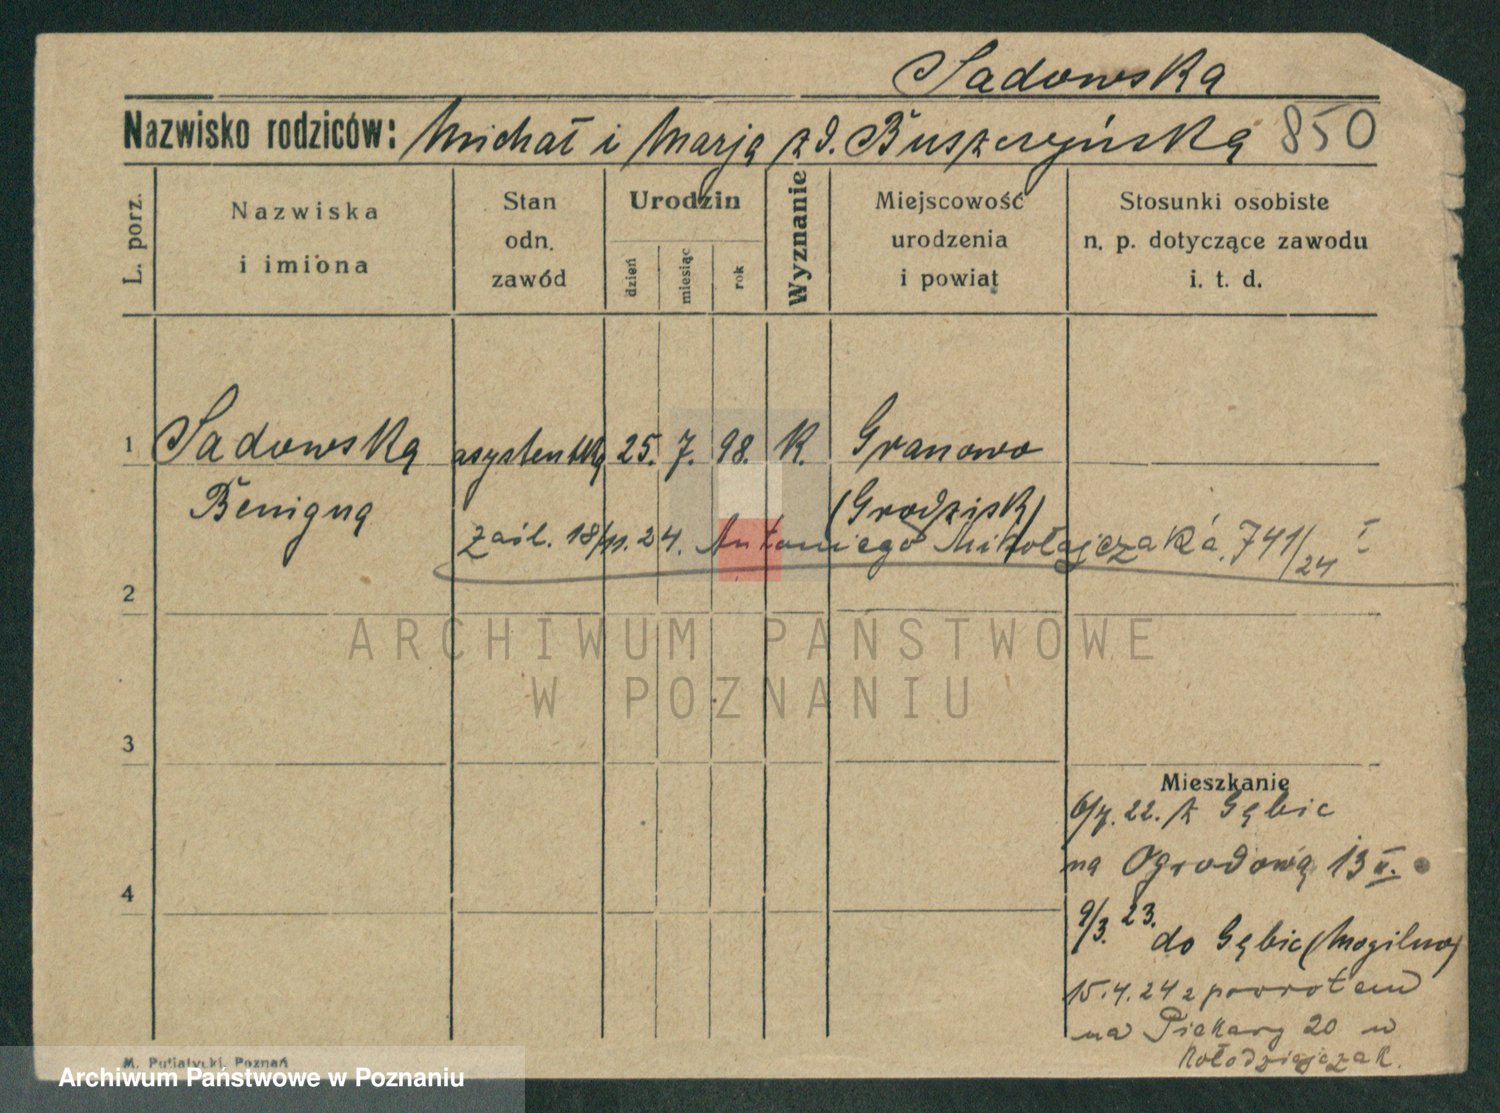 Sadowska
Nazwisko rodziców: Michał i Marja z d. Buszczyńska 850
L. porz.
Nazwiska
i imiona
Stan
odn.
zawód
Urodzin
dzień
miesiąc
rok
Wyznanie
Miejscowość
urodzenia
i powiat
Stosunki osobiste
n. p. dotyczące zawodu
i. t. d.
1 Sadowska asystentka 25. 7. 98. K. Granowo
Benigna (Grodzisk)
zaśl. 18/11. 24. Antoniego Mikołajczaka 741/24 I
2
ARCHIWUM PAŃSTWOWE
W POZNANIU
3
Mieszkanie
6/7. 22. z Gębic
na Ogrodową 13 II.
4
9/3. 23. do Gębic (Mogilno)
15.4.24 z powrotem
na Piekary 20 u
Kołodziejczak.
M. Putiatycki, Poznań
Archiwum Państwowe w Poznaniu